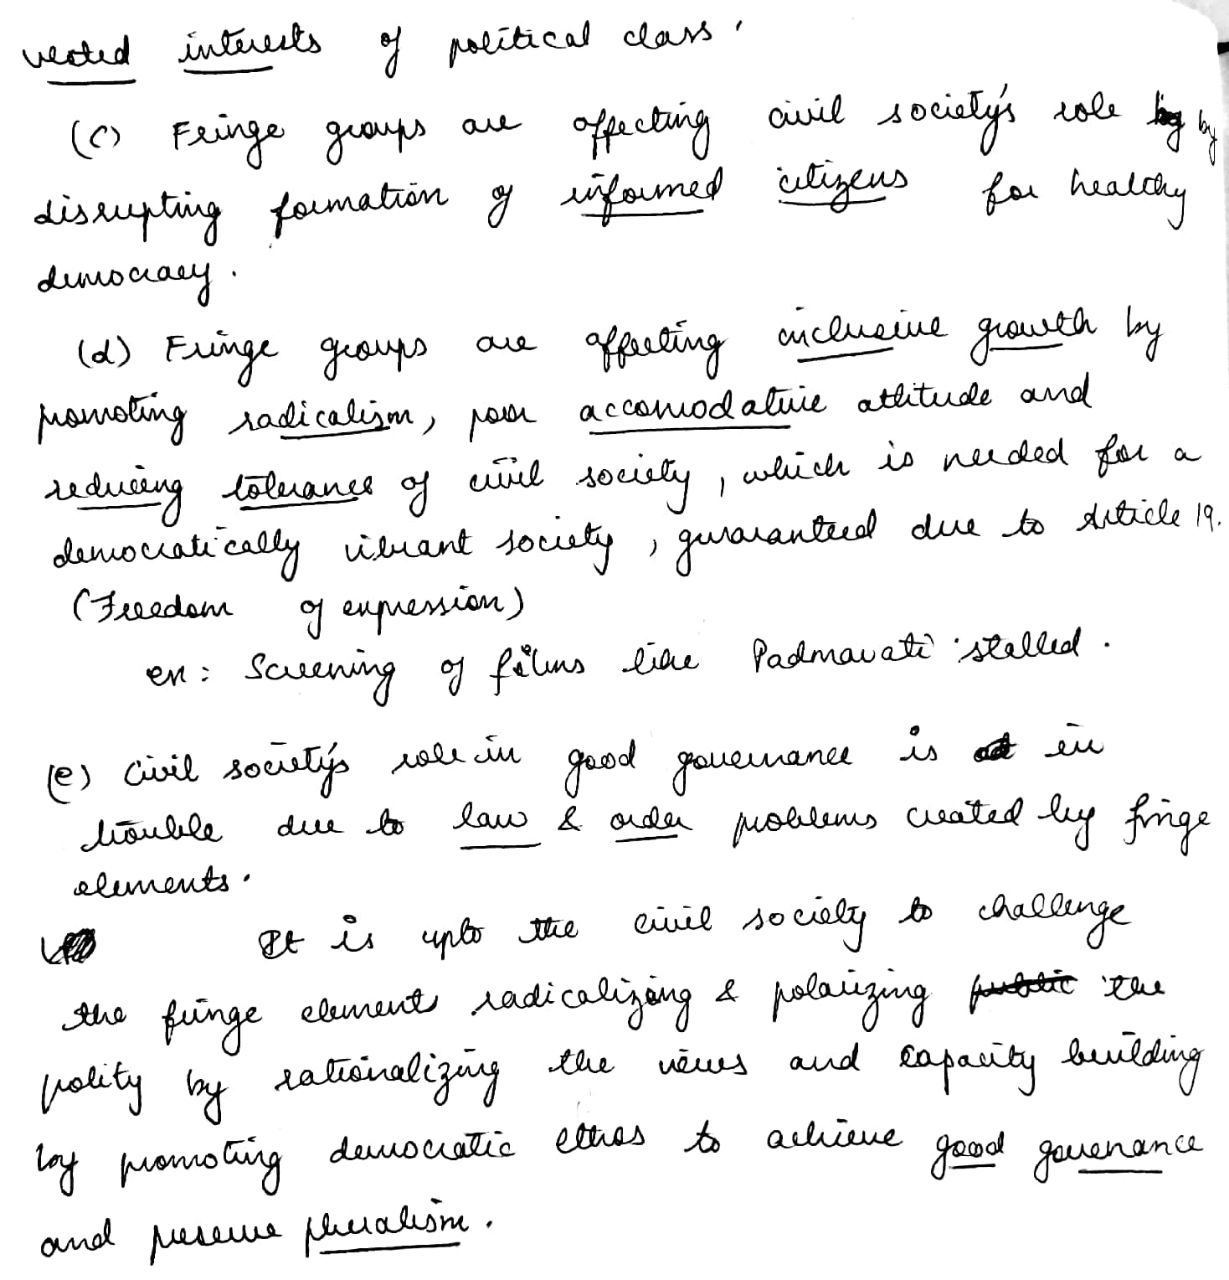 vested interests of political class.
(c) Fringe groups are affecting civil society's role by by
disrupting formation of informed citizens for healthy
democracy.
(d) Fringe groups are affecting inclusive growth by
promoting radicalism, poor accomodative attitude and
reducing tolerance of civil society, which is needed for a
democratically vibrant society, guaranteed due to Article 19.
(Freedom of expression)
ex: Screening of films like Padmavati stalled.
(e) Civil society's role in good governance is in
trouble due to law & order problems created by fringe
elements.
It is upto the civil society to challenge
the fringe elements radicalizing & polarizing public the
polity by rationalizing the views and capacity building
by promoting democratic ethos to achieve good govenance
and preserve pluralism.